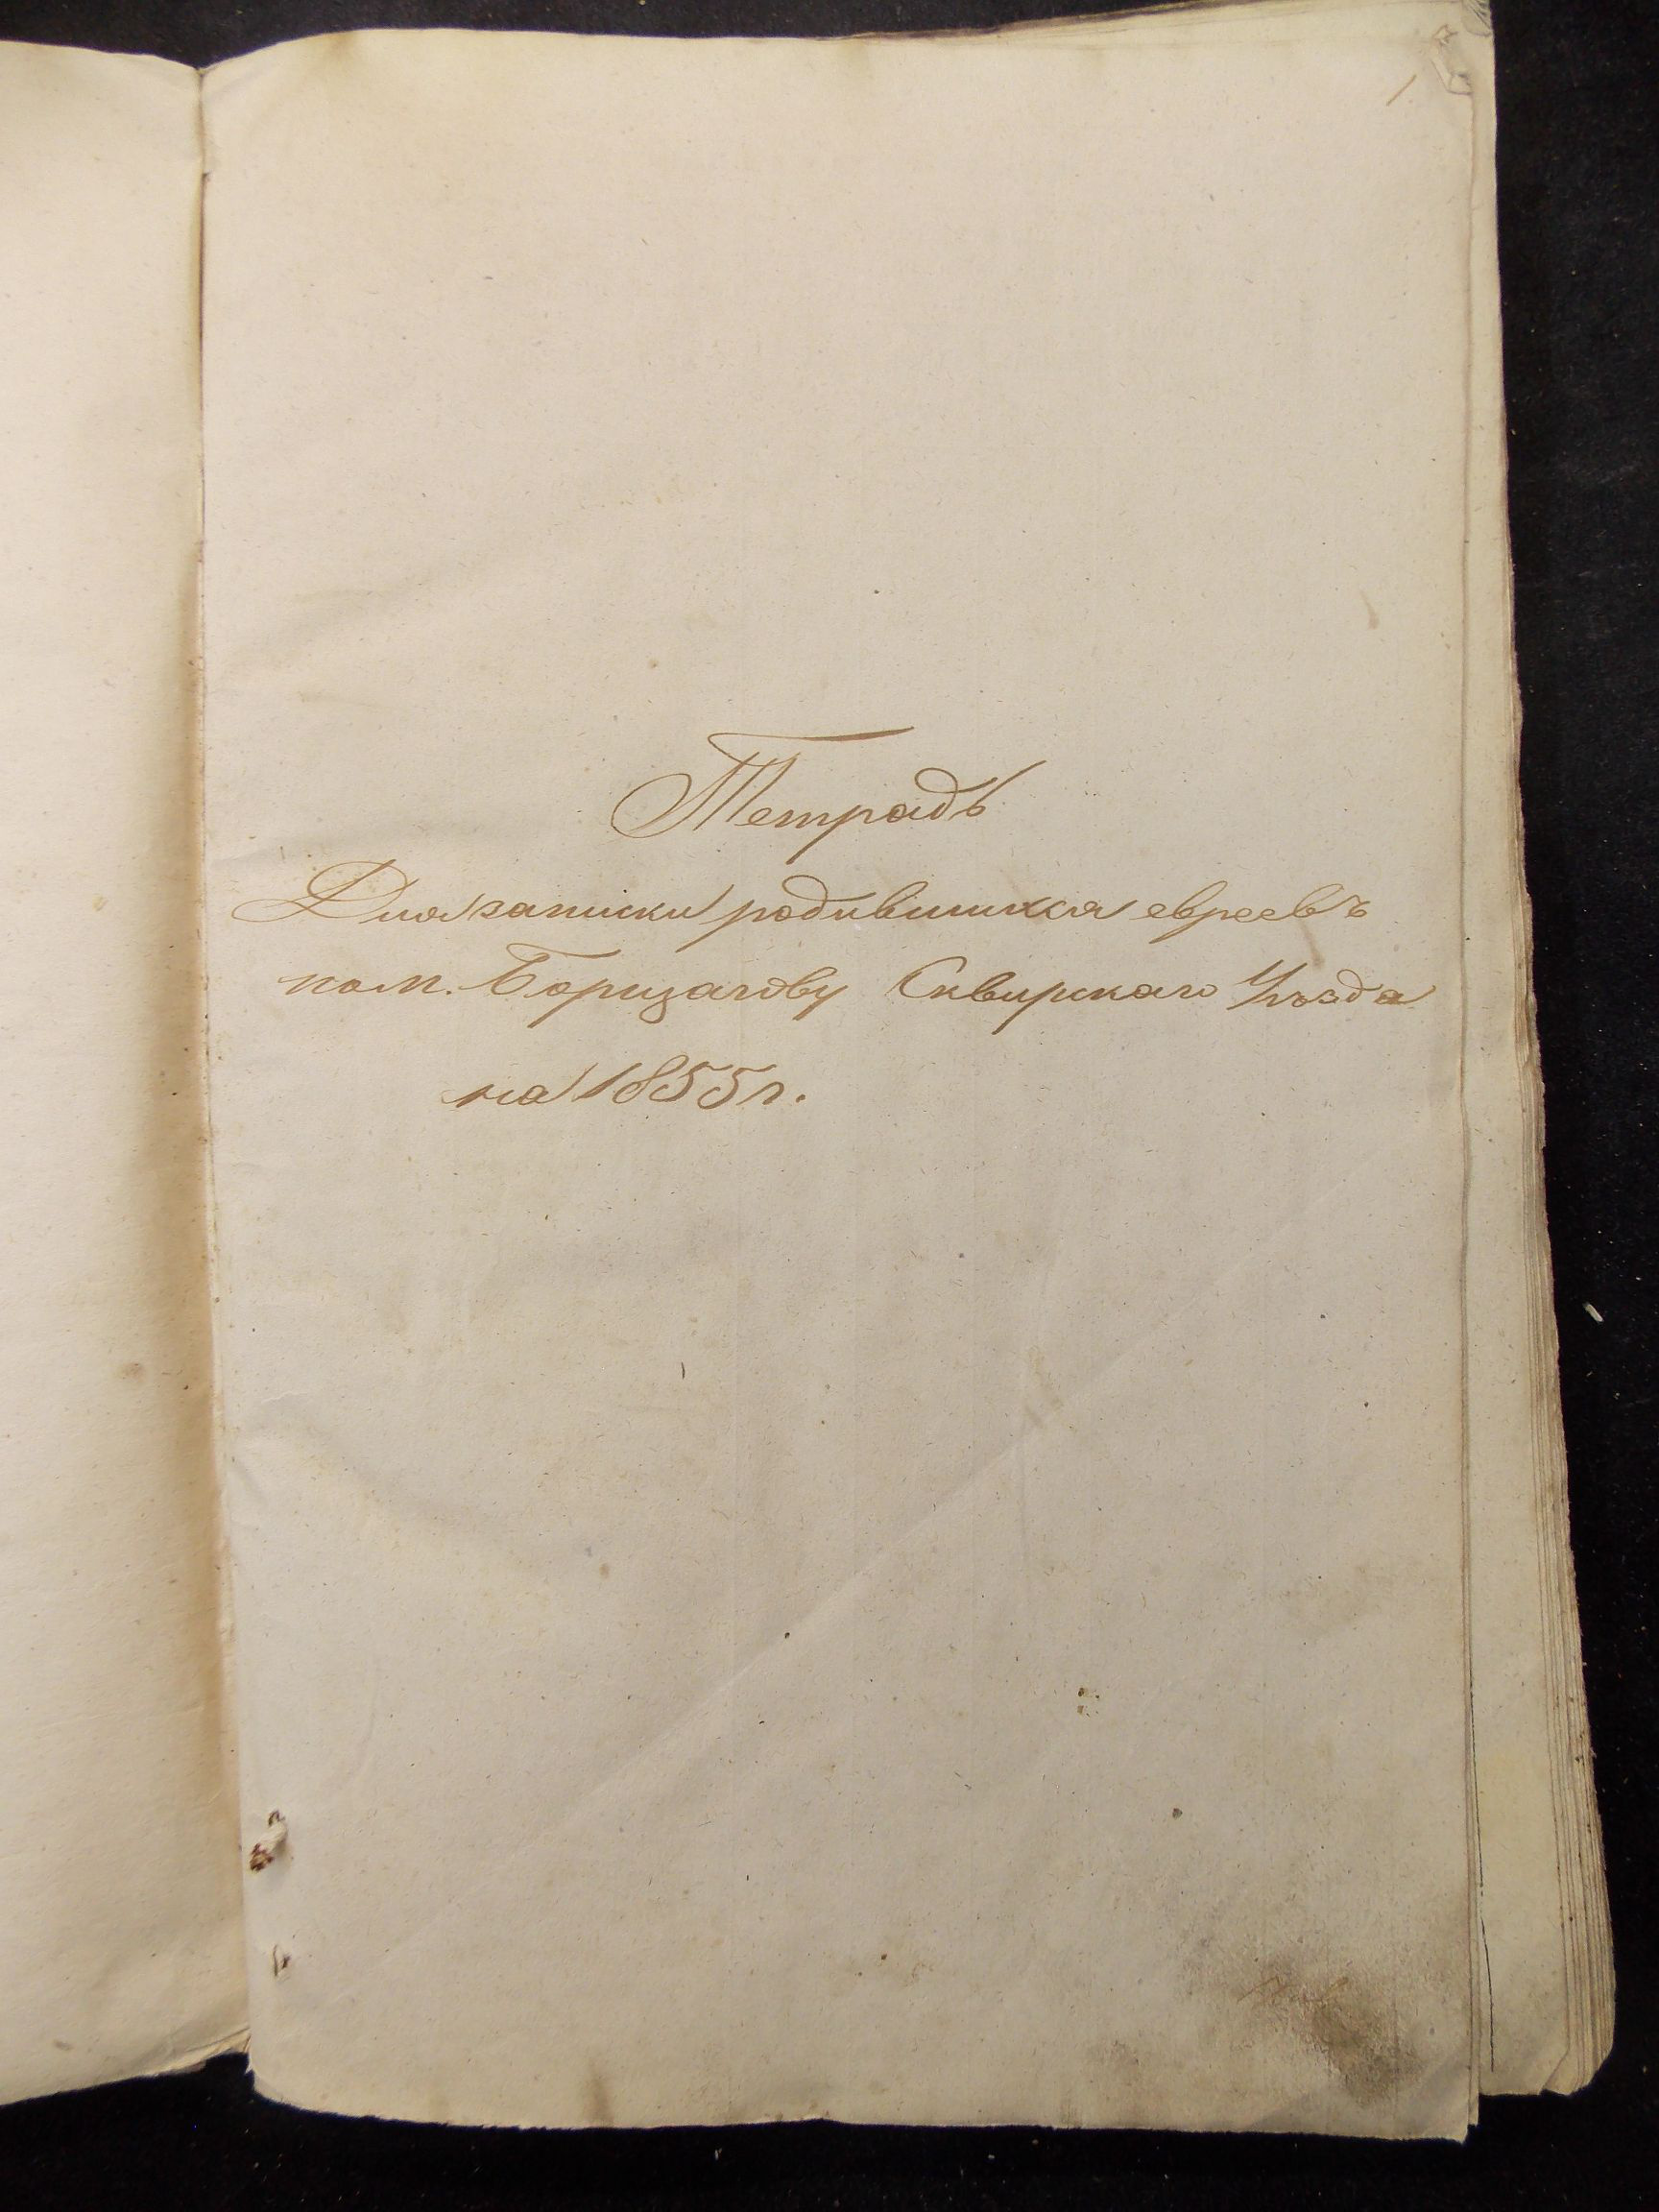 1
Тетрадь
Для записки родившихся евреевъ
по м. Борщаговку Сквирскаго Уѣзда
на 1855 г.